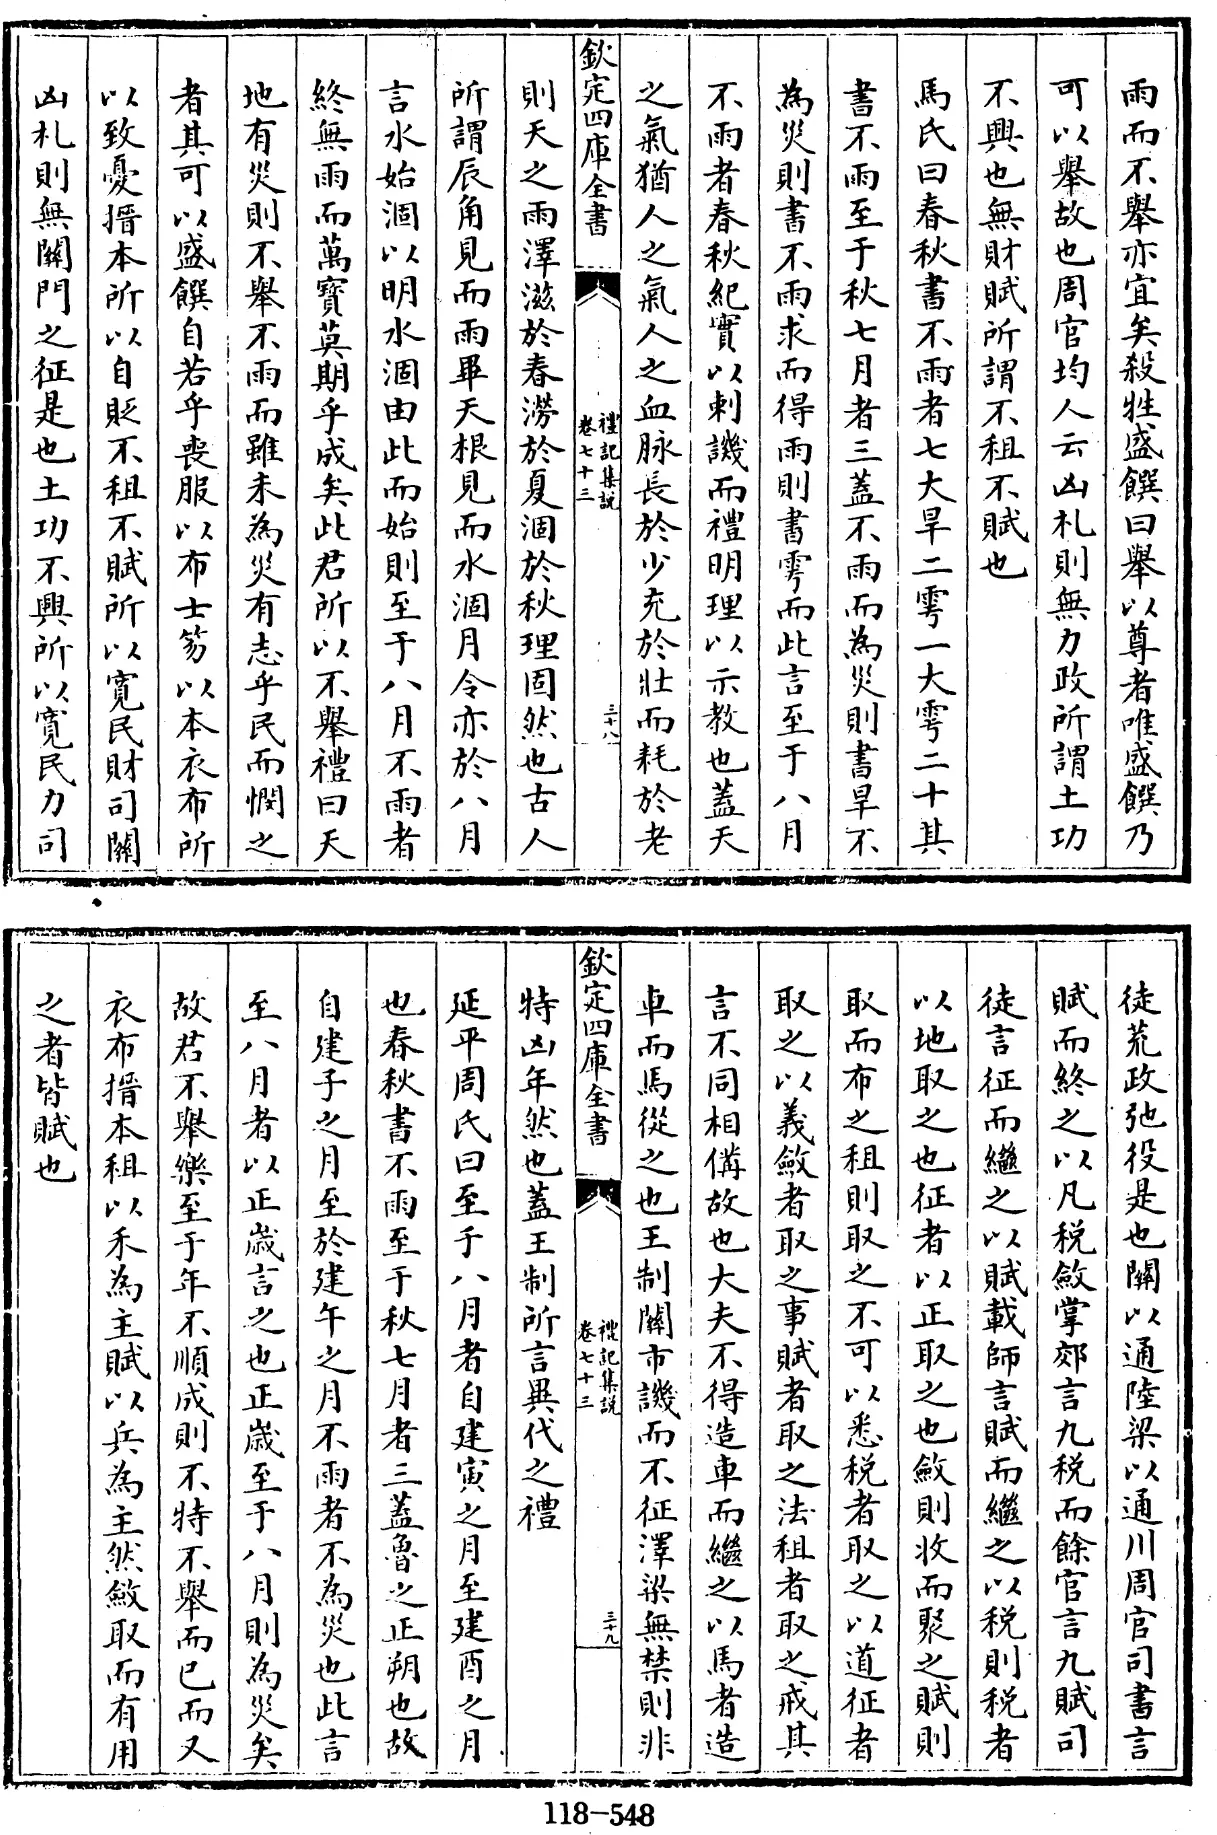 雨而不舉亦宜矣殺牲盛饌曰舉以尊者唯盛饌乃
可以舉故也周官均人云凶札則無力政所謂土功
不興也無財賦所謂不租不賦也
馬氏曰春秋書不雨者七大旱二雩一大雩二十其
書不雨至于秋七月者三蓋不雨而為災則書旱不
為災則書不雨求而得雨則書雩而此言至于八月
不雨者春秋紀實以刺譏而禮明理以示教也蓋天
之氣猶人之氣人之血脉長於少充於壯而耗於老
欽定四庫全書
禮記集說
卷七十三
三十八
則天之雨澤滋於春澇於夏涸於秋理固然也古人
所謂辰角見而雨畢天根見而水涸月令亦於八月
言水始涸以明水涸由此而始則至于八月不雨者
終無雨而萬寶莫期乎成矣此君所以不舉禮曰天
地有災則不舉不雨而雖未為災有志乎民而憫之
者其可以盛饌自若乎喪服以布士笏以本衣布所
以致憂搢本所以自貶不租不賦所以寬民財司關
凶札則無關門之征是也土功不興所以寬民力司
徒荒政弛役是也關以通陸梁以通川周官司書言
賦而終之以凡税斂掌郊言九税而餘官言九賦司
徒言征而繼之以賦載師言賦而繼之以税則税者
以地取之也征者以正取之也斂則收而聚之賦則
取而布之租則取之不可以悉税者取之以道征者
取之以義斂者取之事賦者取之法租者取之戒其
言不同相備故也大夫不得造車而繼之以馬者造
車而馬從之也王制關市譏而不征澤梁無禁則非
欽定四庫全書
禮記集說
卷七十三
三十九
特凶年然也蓋王制所言異代之禮
延平周氏曰至于八月者自建寅之月至建酉之月
也春秋書不雨至于秋七月者三蓋魯之正朔也故
自建子之月至於建午之月不雨者不為災也此言
至八月者以正歲言之也正歲至于八月則為災矣
故君不舉樂至于年不順成則不特不舉而已而又
衣布搢本租以禾為主賦以兵為主然斂取而有用
之者皆賦也
118-548